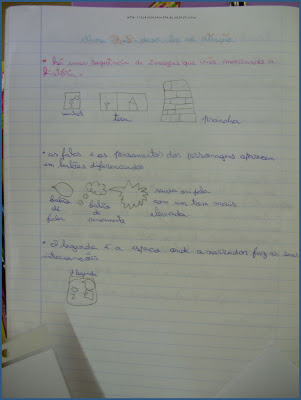 • há uma sequência de imagens que vão mostrando a
história.
tira
prancha
• as falas e os pensamentos dos personagens aparecem
em balões diferenciados
balão
de
falas
balão
de
pensamento
com um tom mais
elevado
• a legenda é o espaço onde o narrador faz as suas
legenda